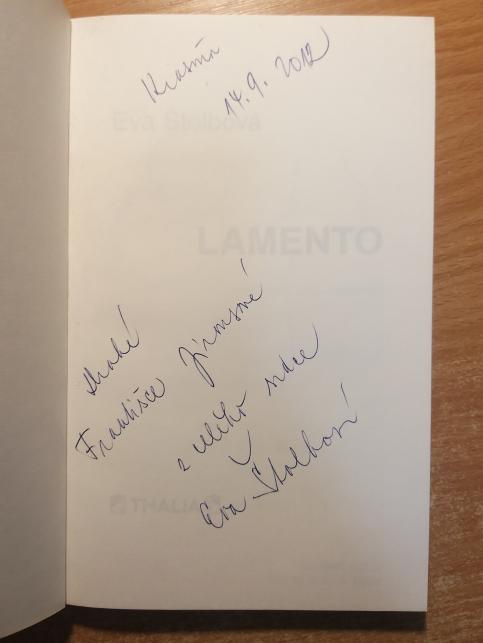 14. 9. 2012
Eva Štolbová
LAMENTO
drahé
Františce Jiránkové
z celého srdce
Eva Štolbová
THALIA